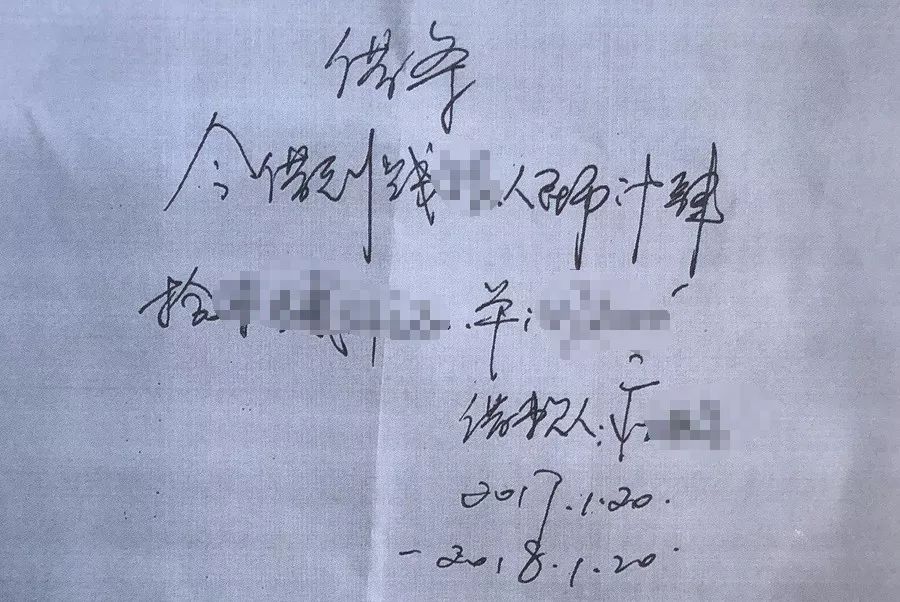 借条
今借到钱 人民币计肆
拾 单:
借款人:
2017.1.20.
-2018.1.20.